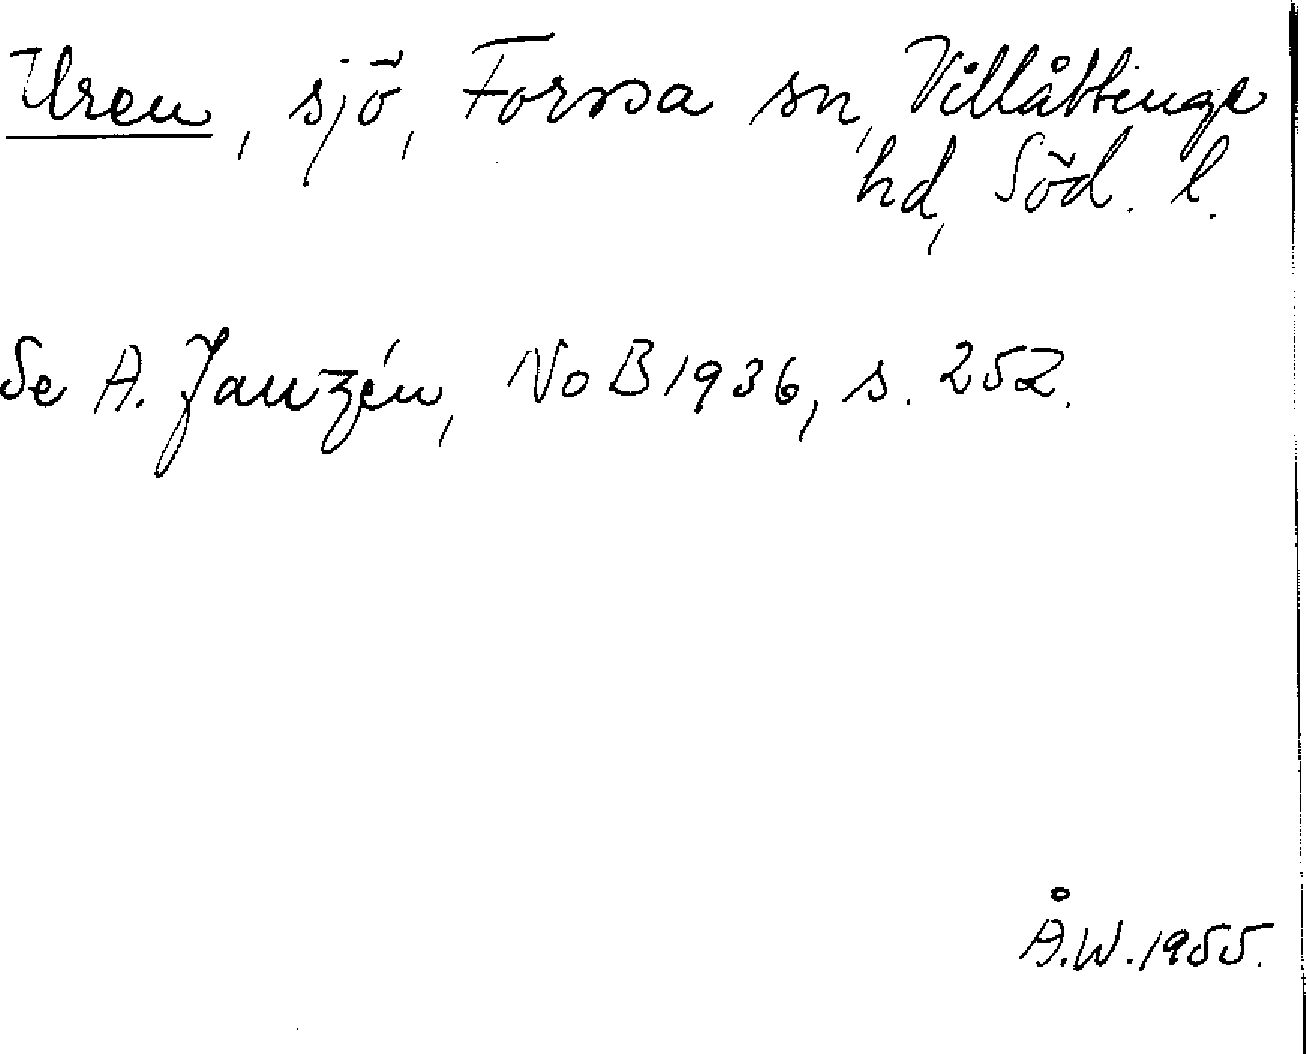 Uren, sjö, Forssa sn, Villåttinge
hd, Söd. l.
Se A. Janzén, NoB 1936, s. 252.
Å.W. 1955.